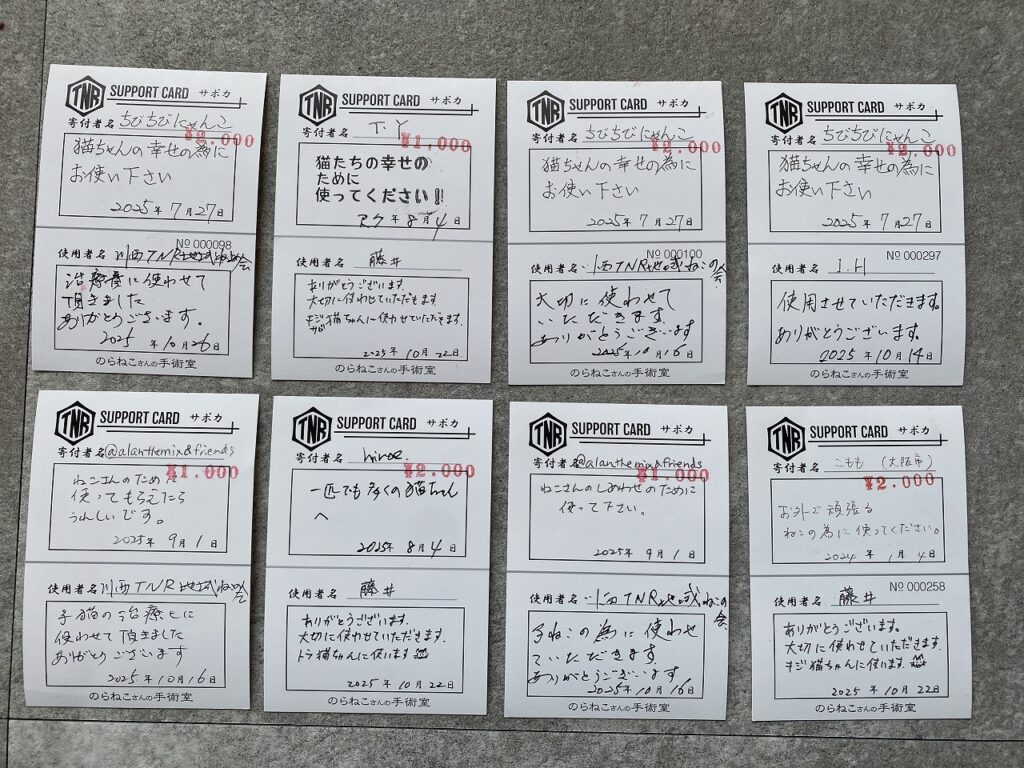 TNR SUPPORT CARD サポカ
寄付者名 ちびちびにゃんこ
¥2,000
猫ちゃんの幸せの為に
お使い下さい
2025年 7月27日
№ 000098
使用者名 川西TNR地域ねこの会
治療費に使わせて
頂きました
ありがとうございます。
2025年10月26日
のらねこさんの手術室
TNR SUPPORT CARD サポカ
寄付者名 T.Y
¥1,000
猫たちの幸せの
ために
使ってください!!
年 8月4日
使用者名 藤井
ありがとうございます.
大切に使わせていただきます
キジ猫ちゃんに使わせていただきます.
サビ
2025年10月22日
のらねこさんの手術室
TNR SUPPORT CARD サポカ
寄付者名 ちびちびにゃんこ
¥2,000
猫ちゃんの幸せの為に
お使い下さい
2025年 7月27日
№ 000100
使用者名 川西TNR地域ねこの会
大切に使わせて
いただきます
ありがとうございます
2025年10月16日
のらねこさんの手術室
TNR SUPPORT CARD サポカ
寄付者名 ちびちびにゃんこ
¥2,000
猫ちゃんの幸せの為に
お使い下さい
2025年 7月27日
№ 000297
使用者名 I.H
使用させていただきます。
ありがとうございます。
2025年10月14日
のらねこさんの手術室
TNR SUPPORT CARD サポカ
寄付者名 @alanthemix&friends
¥1,000
ねこさんのために
使ってもらえたら
うれしいです。
2025年 9月1日
使用者名 川西TNR地域ねこの会
子猫の治療に
使わせて頂きました
ありがとうございます
2025年10月16日
のらねこさんの手術室
TNR SUPPORT CARD サポカ
寄付者名 hiroe.
¥2,000
一匹でも多くの猫ちゃん
へ
2025年 8月4日
使用者名 藤井
ありがとうございます.
大切に使わせていただきます.
トラ猫ちゃんに使います
2025年10月22日
のらねこさんの手術室
TNR SUPPORT CARD サポカ
寄付者名 @alanthemix&friends
¥1,000
ねこさんのしあわせのために
使って下さい。
2025年 9月1日
使用者名 川西TNR地域ねこの会
子ねこの為に使わせ
ていただきます
ありがとうございます
2025年10月16日
のらねこさんの手術室
TNR SUPPORT CARD サポカ
寄付者名 こもも (大阪市)
¥2,000
お外で頑張る
ねこの為に使ってください。
2024年 1月4日
№ 000258
使用者名 藤井
ありがとうございます.
大切に使わせていただきます
キジ猫ちゃんに使います.
2025年10月22日
のらねこさんの手術室